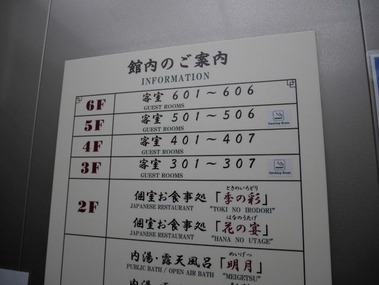 館内のご案内
INFORMATION
6F 客室 601～606
GUEST ROOMS
5F 客室 501～506
GUEST ROOMS
4F 客室 401～407
GUEST ROOMS
3F 客室 301～307
GUEST ROOMS
ときのいろどり
2F 個室お食事処「季の彩」
JAPANESE RESTAURANT "TOKI NO IRODORI"
はなのうたげ
個室お食事処「花の宴」
JAPANESE RESTAURANT "HANA NO UTAGE"
めいげつ
内湯・露天風呂「明月」
PUBLIC BATH / OPEN AIR BATH "MEIGETSU"